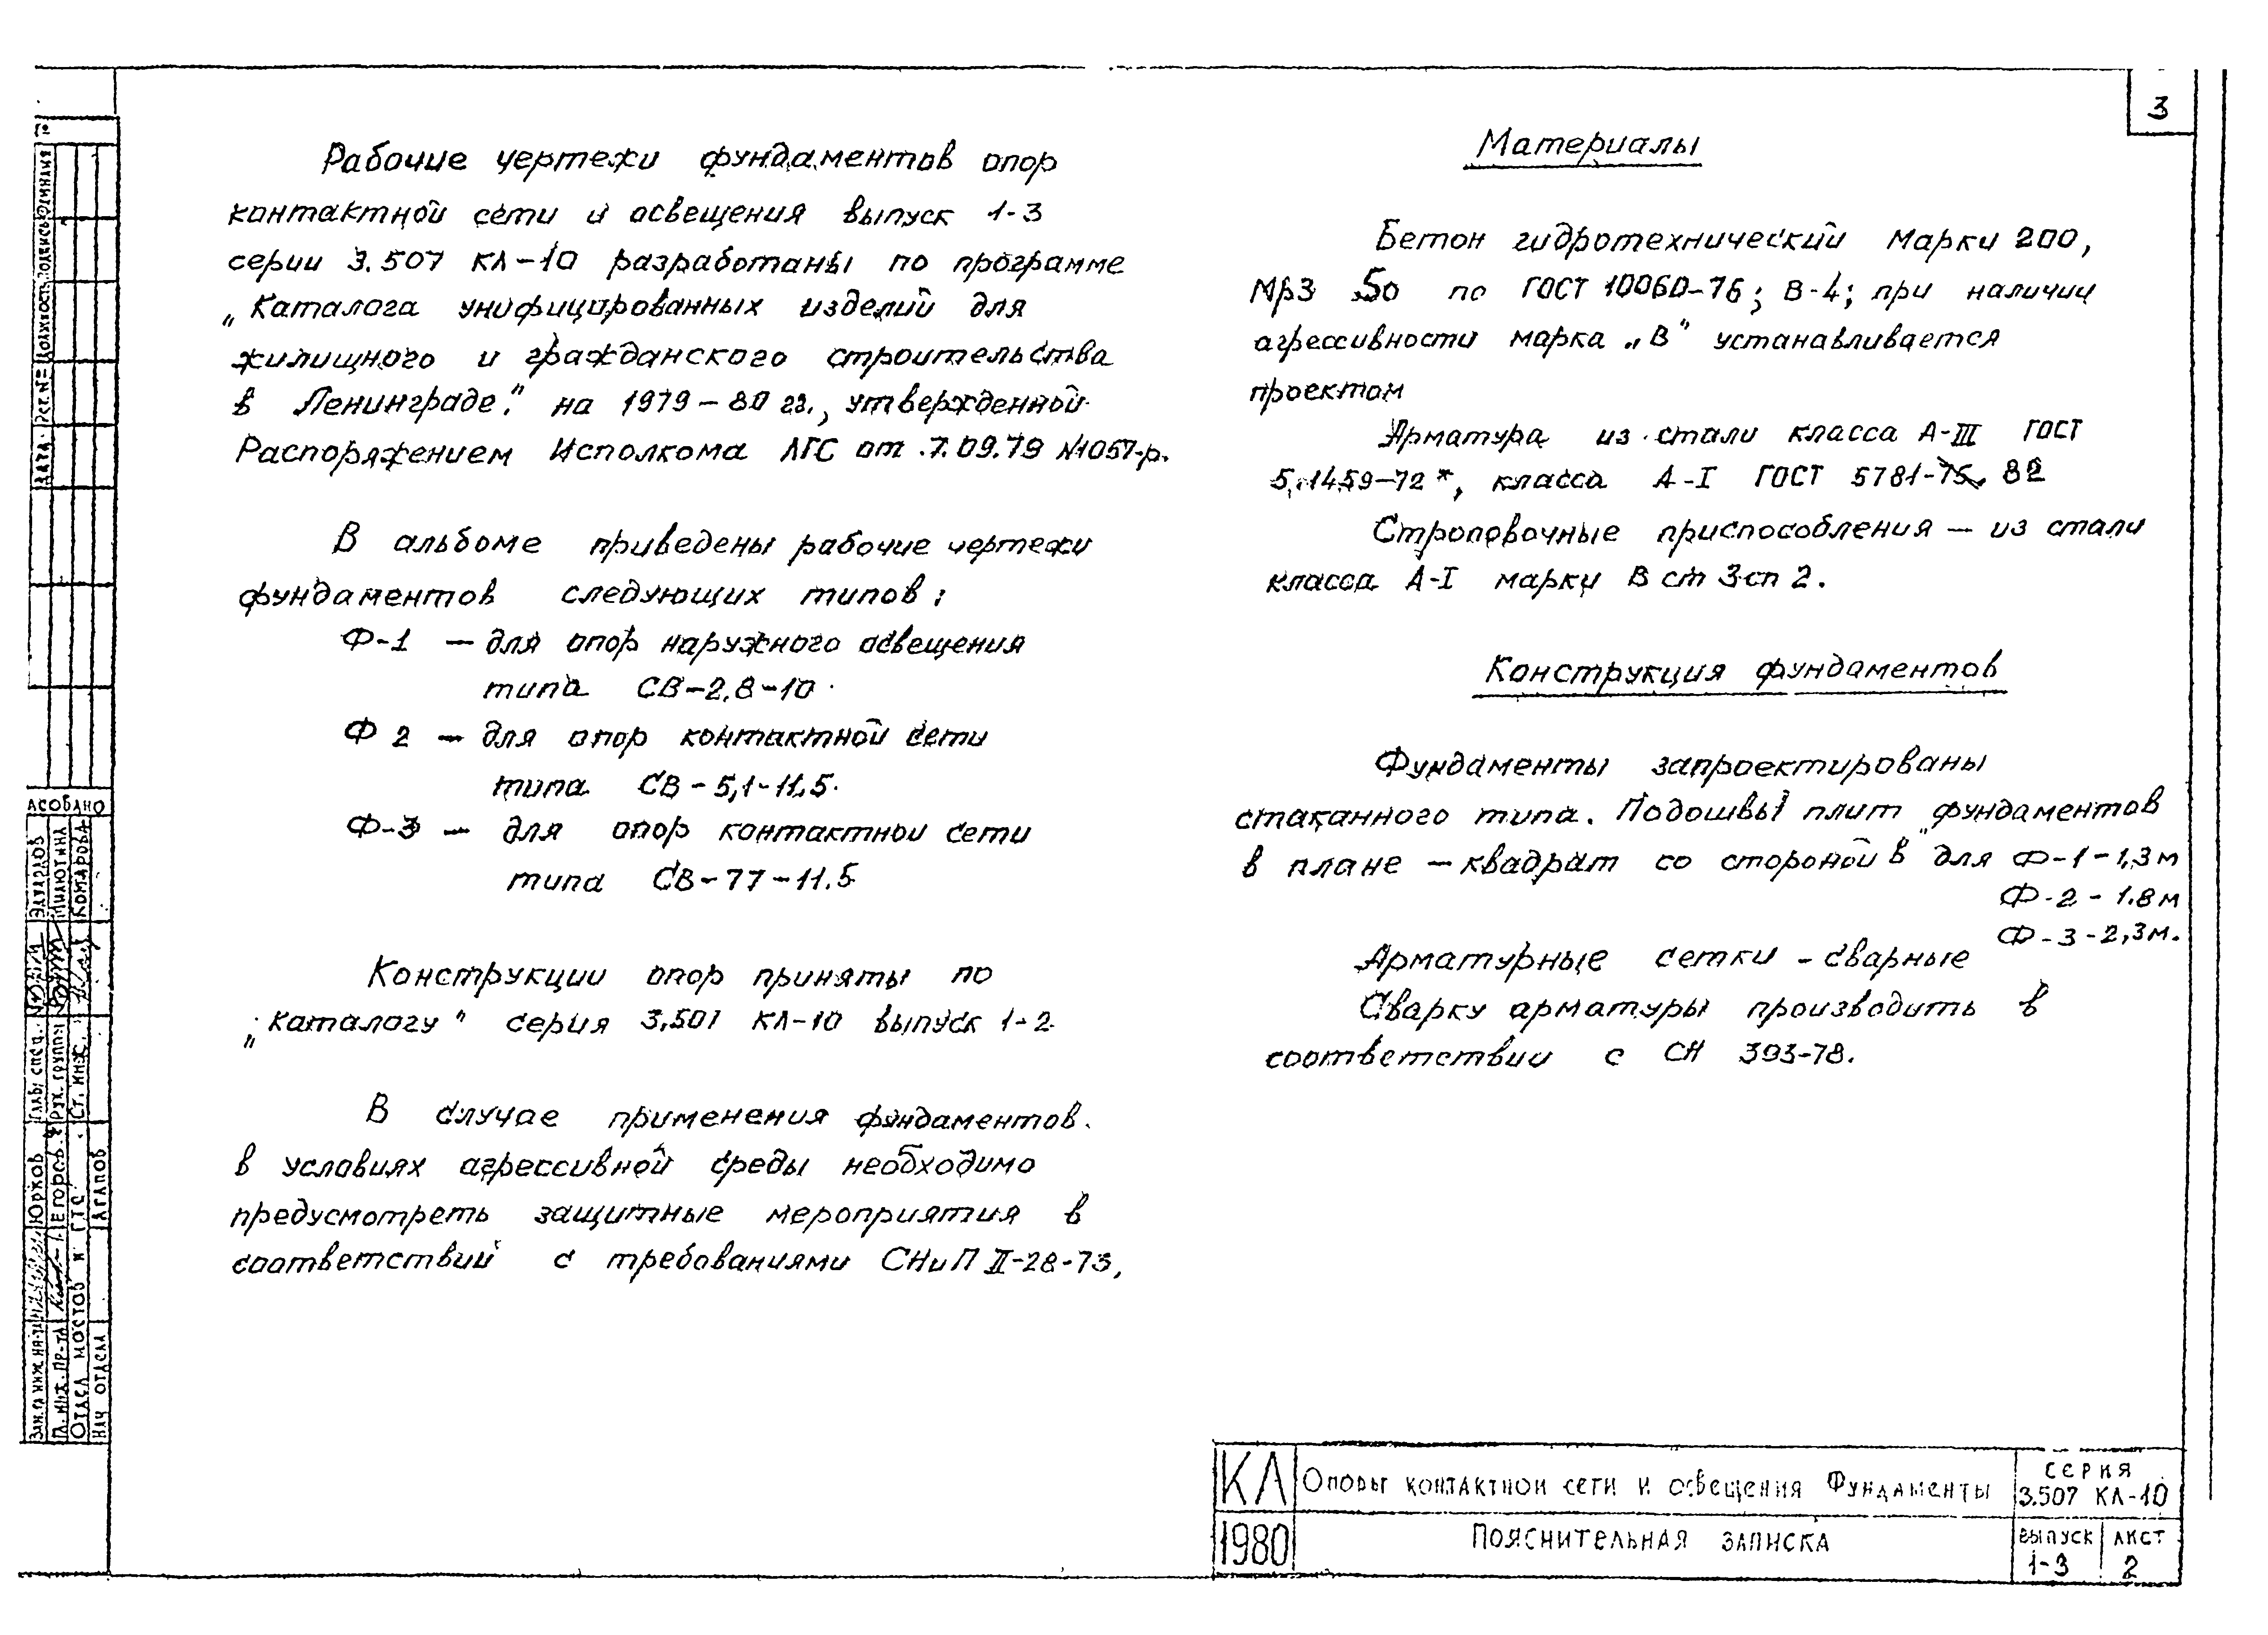 3
Рабочие чертежи фундаментов опор
контактной сети и освещения выпуск 1-3
серии 3.507 КЛ-10 разработаны по программе
„Каталога унифицированных изделий для
жилищного и гражданского строительства
в Ленинграде." на 1979-80 гг., утвержденной
Распоряжением Исполкома ЛГС от 7.09.79 №1057-р.
В альбоме приведены рабочие чертежи
фундаментов следующих типов:
Ф-1 — для опор наружного освещения
типа СВ-2,8-10
Ф 2 — для опор контактной сети
типа СВ-5,1-11,5.
Ф-3 — для опор контактной сети
типа СВ-77-11.5
Конструкции опор приняты по
„Каталогу" серия 3.507 КЛ-10 выпуск 1-2
В случае применения фундаментов
в условиях агрессивной среды необходимо
предусмотреть защитные мероприятия в
соответствий с требованиями СНиП II-28-73,
Материалы
Бетон гидротехнический марки 200,
Мрз 50 по ГОСТ 10060-76; В-4; при наличии
агрессивности марка „В" устанавливается
проектом
Арматура из стали класса А-III ГОСТ
5.1459-72*, класса А-I ГОСТ 5781-75 82
Строповочные приспособления — из стали
класса А-I марки В ст 3 сп 2.
Конструкция фундаментов
Фундаменты запроектированы
стаканного типа. Подошвы плит фундаментов
в плане — квадрат со стороной в для Ф-1-1,3м
Ф-2-1.8м
Ф-3-2,3м.
Арматурные сетки - сварные
Сварку арматуры производить в
соответствии с СН 393-78.
КЛ
Опоры контактной сети и освещения Фундаменты
серия
3.507 КЛ-10
1980
Пояснительная записка
выпуск
1-3
лист
2
Фамилия
Подпись
Должность
Рег. №
Дата
асовано
Гл. спец.
Рук. группы
Милютина
Ст. инж.
Комарова
Юрков
Гл. инж. пр-та
Егоров
Отдел мостов и ГТС
Нач отдела
Агапов